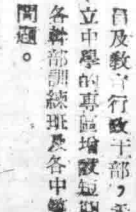 員及教育行政干部，
立中學的專區增設短期
各幹部訓練班及各中等
問題。